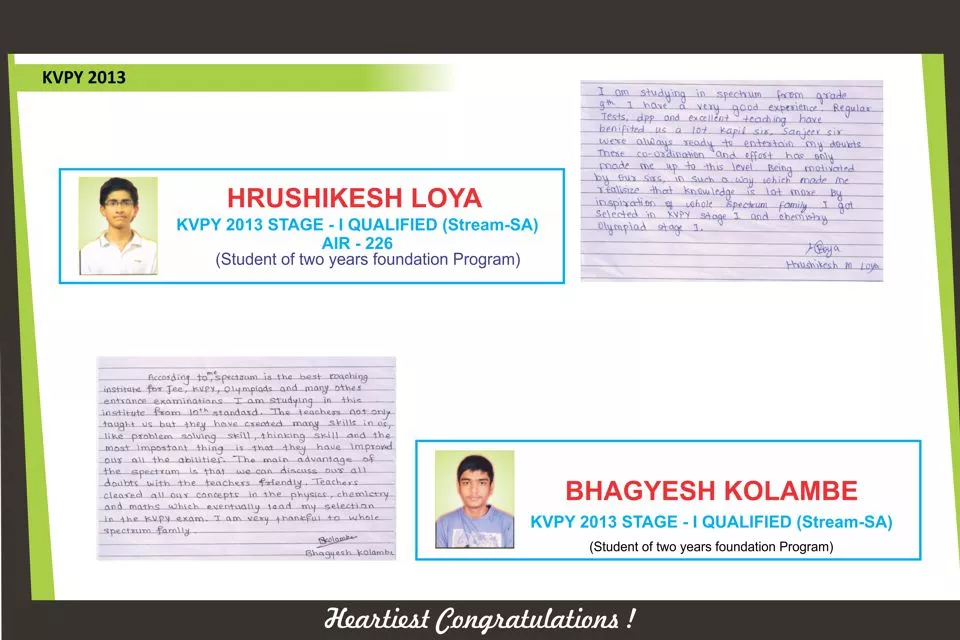 KVPY 2013
I am studying in spectrum from grade
9th I have a very good experience. Regular
Tests, dpp and excellent teaching have
benifited us a lot Kapil sir, Sanjeer sir
were always ready to entertain my doubts
There co-ordination and effort has only
made me up to this level Being motivated
by our sirs, in such a way which made me
realisize that knowledge is lot more By
inspiration of whole spectrum family I got
selected in KVPY stage I and chemistry
Olympiad stage I.
HLoya
Hrushikesh M Loya
HRUSHIKESH LOYA
KVPY 2013 STAGE - I QUALIFIED (Stream-SA)
AIR - 226
(Student of two years foundation Program)
According to me, spectrum is the best coaching
institute for Jee, KVPY, Olympiads and many other
entrance examinations I am studying in this
institute from 10th standard. The teachers not only
taught us but they have created many skills in us,
like problem solving skill, thinking skill and the
most important thing is that they have improved
our all the abilities. The main advantage of
the spectrum is that we can discuss our all
doubts with the teachers friendly. Teachers
cleared all our concepts in the physics, chemistry
and maths which eventually lead my selection
in the KVPY exam. I am very thankful to whole
spectrum family.
BKolambe
Bhagyesh Kolambe
BHAGYESH KOLAMBE
KVPY 2013 STAGE - I QUALIFIED (Stream-SA)
(Student of two years foundation Program)
Heartiest Congratulations !